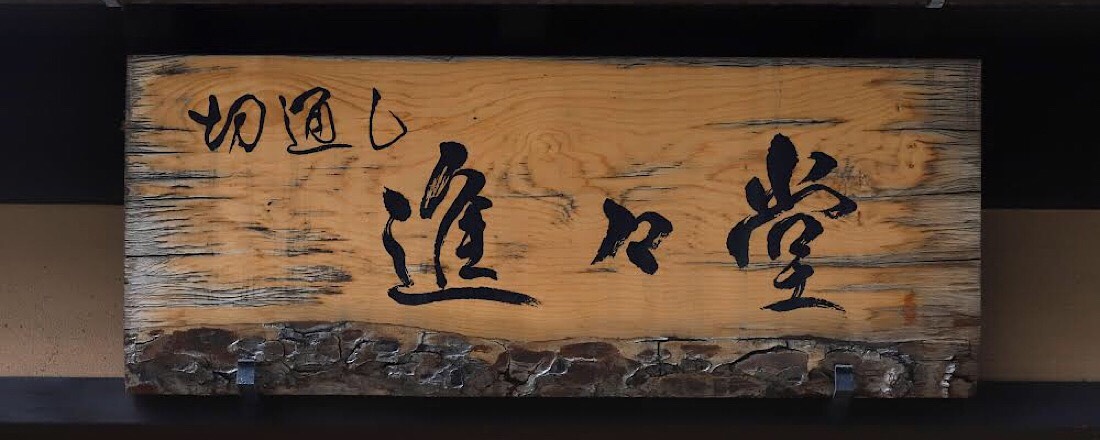 切通し
進々堂